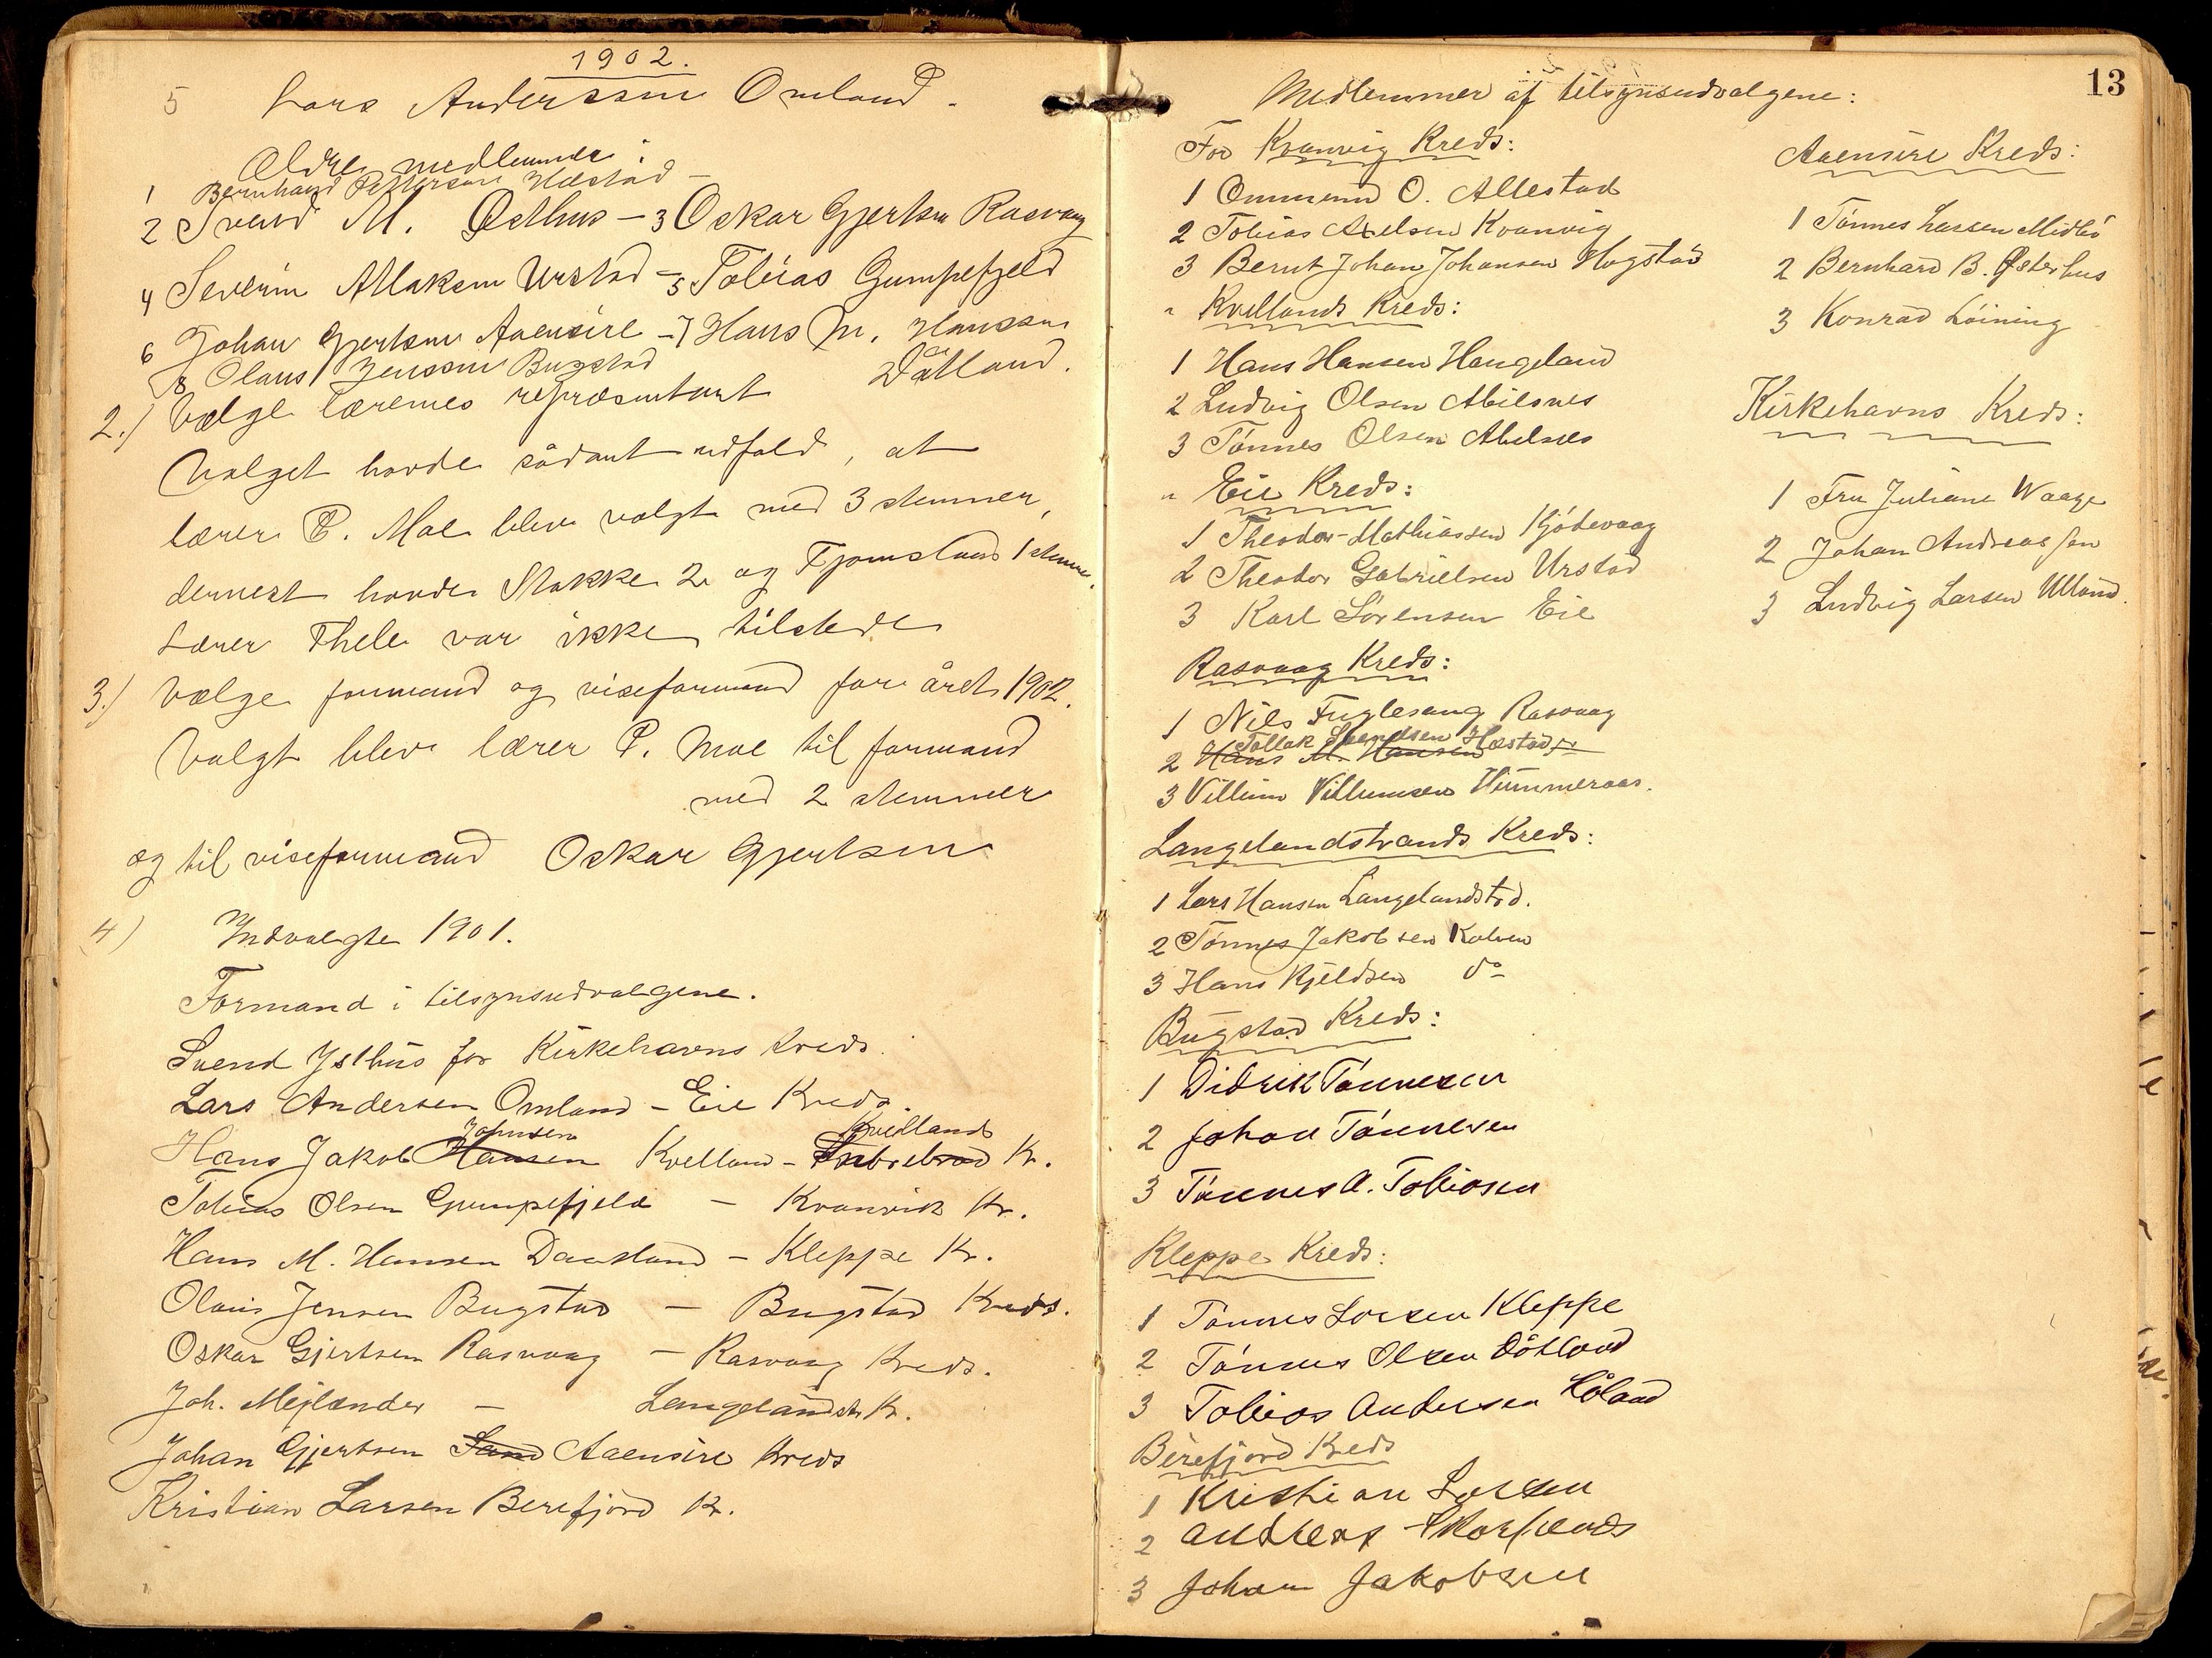 1902.
5 Lars Anderssen Omland.
Ældre medlemmer:
1 Bernhard Pettersen Hæstad -
2 Svend M. Østhus - 3 Oskar Gjertsen Rasvaag
4 Severin Atlaksen Urstad - 5 Tobias Gumpefjeld
6 Johan Gjertsen Aaensire - 7 Hans M. Hanssen
Dåtland.
8 Olaus Jenssen Bugstad
2.) Vælge lærernes repræsentant
Valget havde sådant udfald, at
lærer P. Moe blev valgt med 3 stemmer,
dernest havde Stakke 2 og Fjomstand 1 stemme.
Lærer Thele var ikke tilstede
3.) Vælge formand og viseformand for året 1902.
Valgt blev lærer P. Moe til formand
med 2 stemmer
og til viseformand Oskar Gjertsen
4) Indvalgte 1901.
Formand i tilsynsudvalgene.
Svend Østhus for Kirkehavns Kreds.
Lars Andersen Omland - Eie Kreds.
Johnsen Kvellands
Hans Jakob Hansen Kvelland - K.
Tobias Olsen Gumpefjeld - Kvanvik Kr.
Hans M. Hansen Daatland - Kleppe Kr.
Olaus Jensen Bugstad - Bugstad Kreds.
Oskar Gjertsen Rasvaag - Rasvaag Kreds.
Joh. Mejlænder - Langelandstr. K.
Johan Gjertsen Sand Aaensire Kreds
Kristian Larsen Berefjord K.
13
Medlemmer af tilsynsudvalgene:
For Kvanvig Kreds:
1 Ommund O. Allestad
2 Tobias Axelsen Kvanvig
3 Bernt Johan Johansen Hogstad
" Kvellands Kreds:
1 Hans Hansen Haugeland
2 Ludvig Olsen Abelsnes
3 Tønnes Olsen Abelsnes
" Eie Kreds:
1 Theodor Mathiassen Kjødevaag
2 Theodor Gabrielsen Urstad
3 Karl Sørensen Eie
Rasvaag Kreds:
1 Nils Fuglesang Rasvaag
Tollak Svendsen Hæstad
2 Hans M. Hansen
3 Villum Villumsen Hummeraas.
Langelandstrands Kreds:
1 Lars Hansen Langelandstrd.
2 Tønnes Jakobsen Kalven
3 Hans Kjeldsen do
Bugstad Kreds:
1 Didrik Tønnesen
2 Johan Tønnesen
3 Tønnes A. Tobiasen
Kleppe Kreds:
1 Tønnes Larsen Kleppe
2 Tønnes Olsen Dåtland
3 Tobias Andersen Båland
Berefjord Kreds
1 Kristian Larsen
2 Andreas
3 Johan Jakobsen
Aaensire Kreds:
1 Tønnes Larsen Midbø
2 Bernhard B. Østerhus
3 Konrad Løining
Kirkehavns Kreds:
1 Fru Juliane Waage
2 Johan Andreassen
3 Ludvig Larsen Ulland.